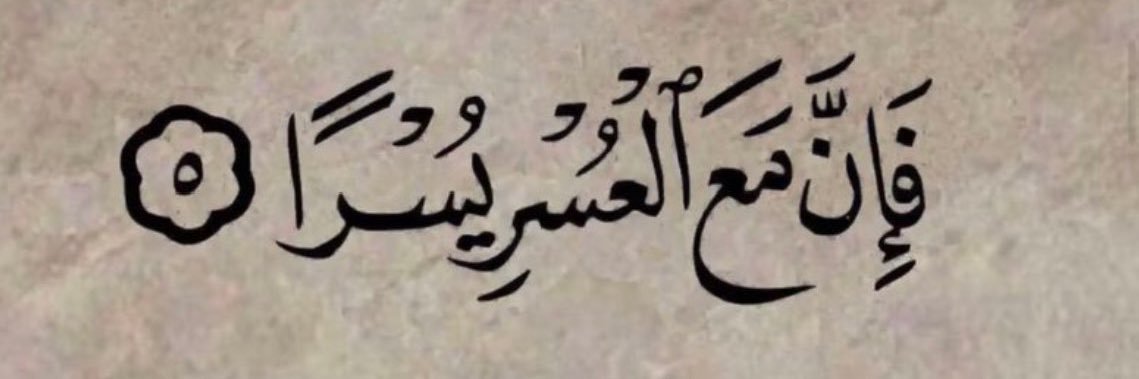 فَإِنَّ مَعَ ٱلْعُسْرِ يُسْرًا ٥